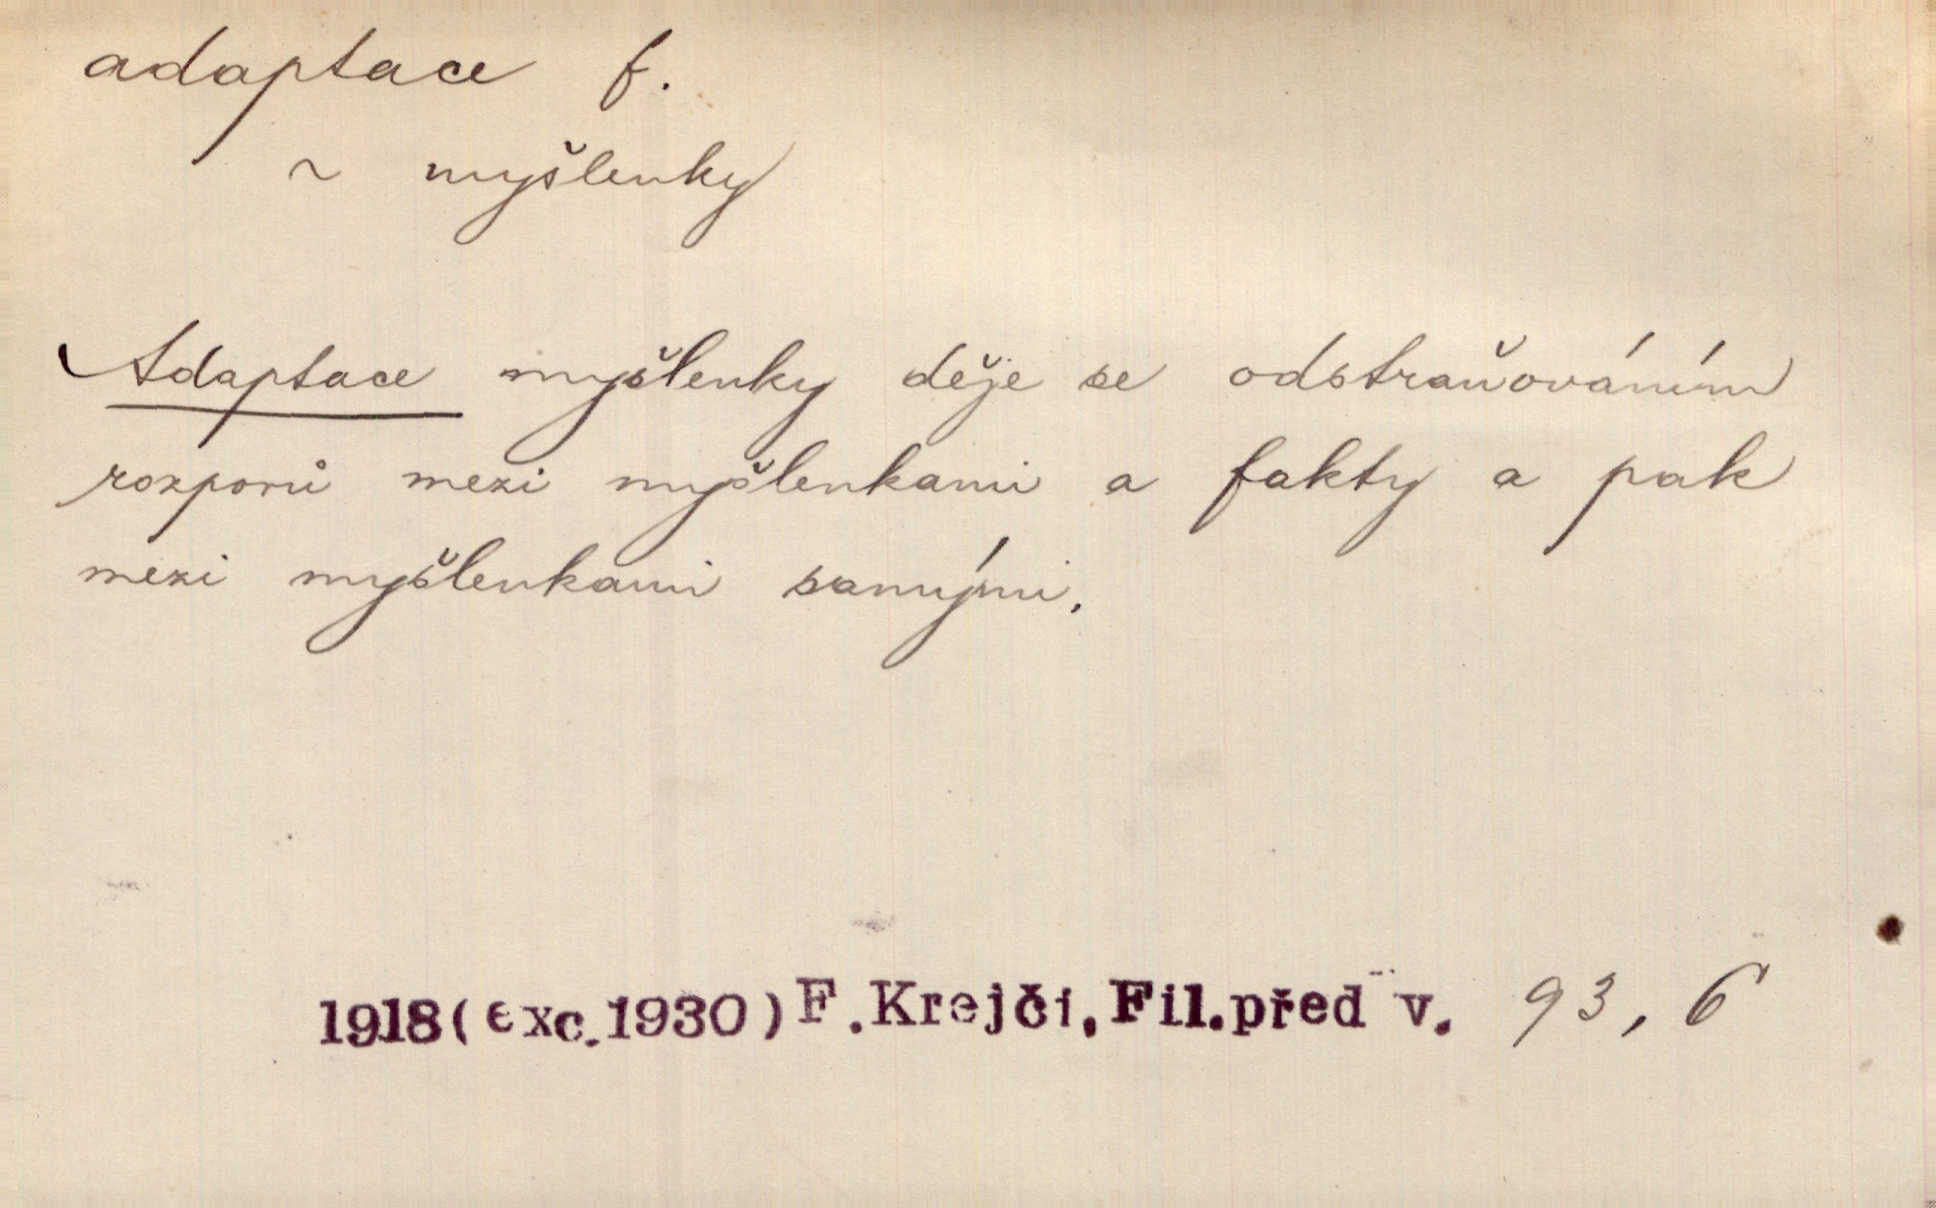 adaptace f.
~ myšlenky
Adaptace myšlenky děje se odstraňováním
rozporů mezi myšlenkami a fakty a pak
mezi myšlenkami samými.
1918(exc.1930)F.Krejčí,Fil.před v. 93, 6